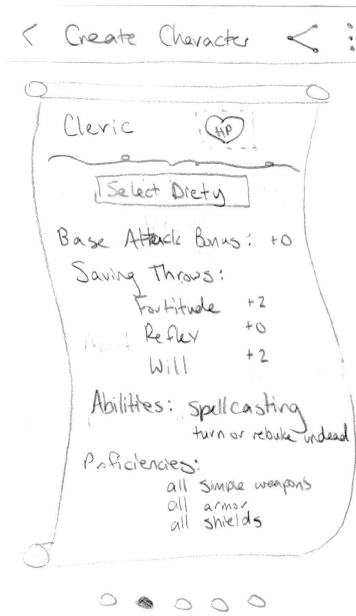 Create Character
Cleric
HP
Select Diety
Base Attack Bonus: +0
Saving Throws:
Fortitude +2
Reflex +0
Will +2
Abilities: Spellcasting
turn or rebuke undead
Proficiencies:
all simple weapons
all armor
all shields